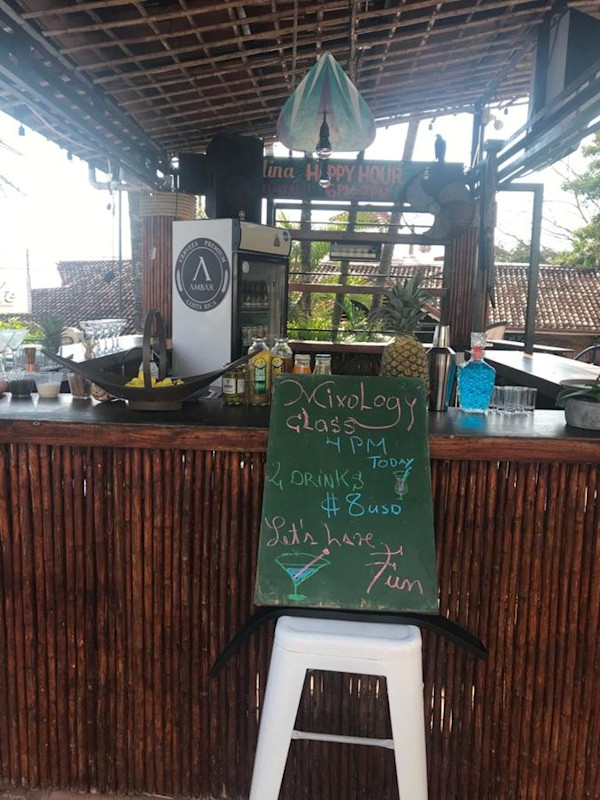 HAPPY HOUR
6PM-7PM
CERVEZA PREMIUM
AMBAR
COSTA RICA
Mixology
class
4 PM
TODAY
2 DRINKS
$8 USD
Let's have
Fun